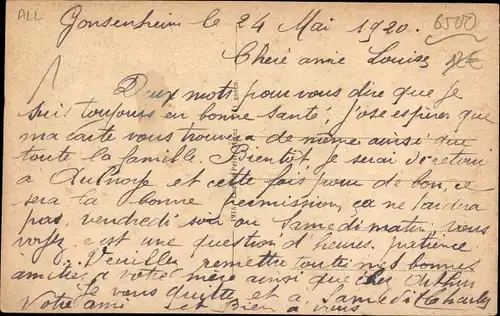 ALL
Gonsenheim le 24 Mai 1920.
6500
12€
Cheré amie Louise
Deux mots pour vous dire que je
suis toujours en bonne santé; j'ose espérer que
ma carte vous trouvera de même ainsi que
toute la famille. Bientôt je serai de retour
à et cette fois pour de bon, ce
sera la bonne permission, ça ne tardra
pas, vendredi soir ou Samedi matin, vous
voyez c'est une question d'heures. patience
Veuillez remettre toute mes bonnes
amitiés à votre mère ainsi que cher Arthur
Je vous quitte et à Samedi Charles
Votre ami Bien à vous